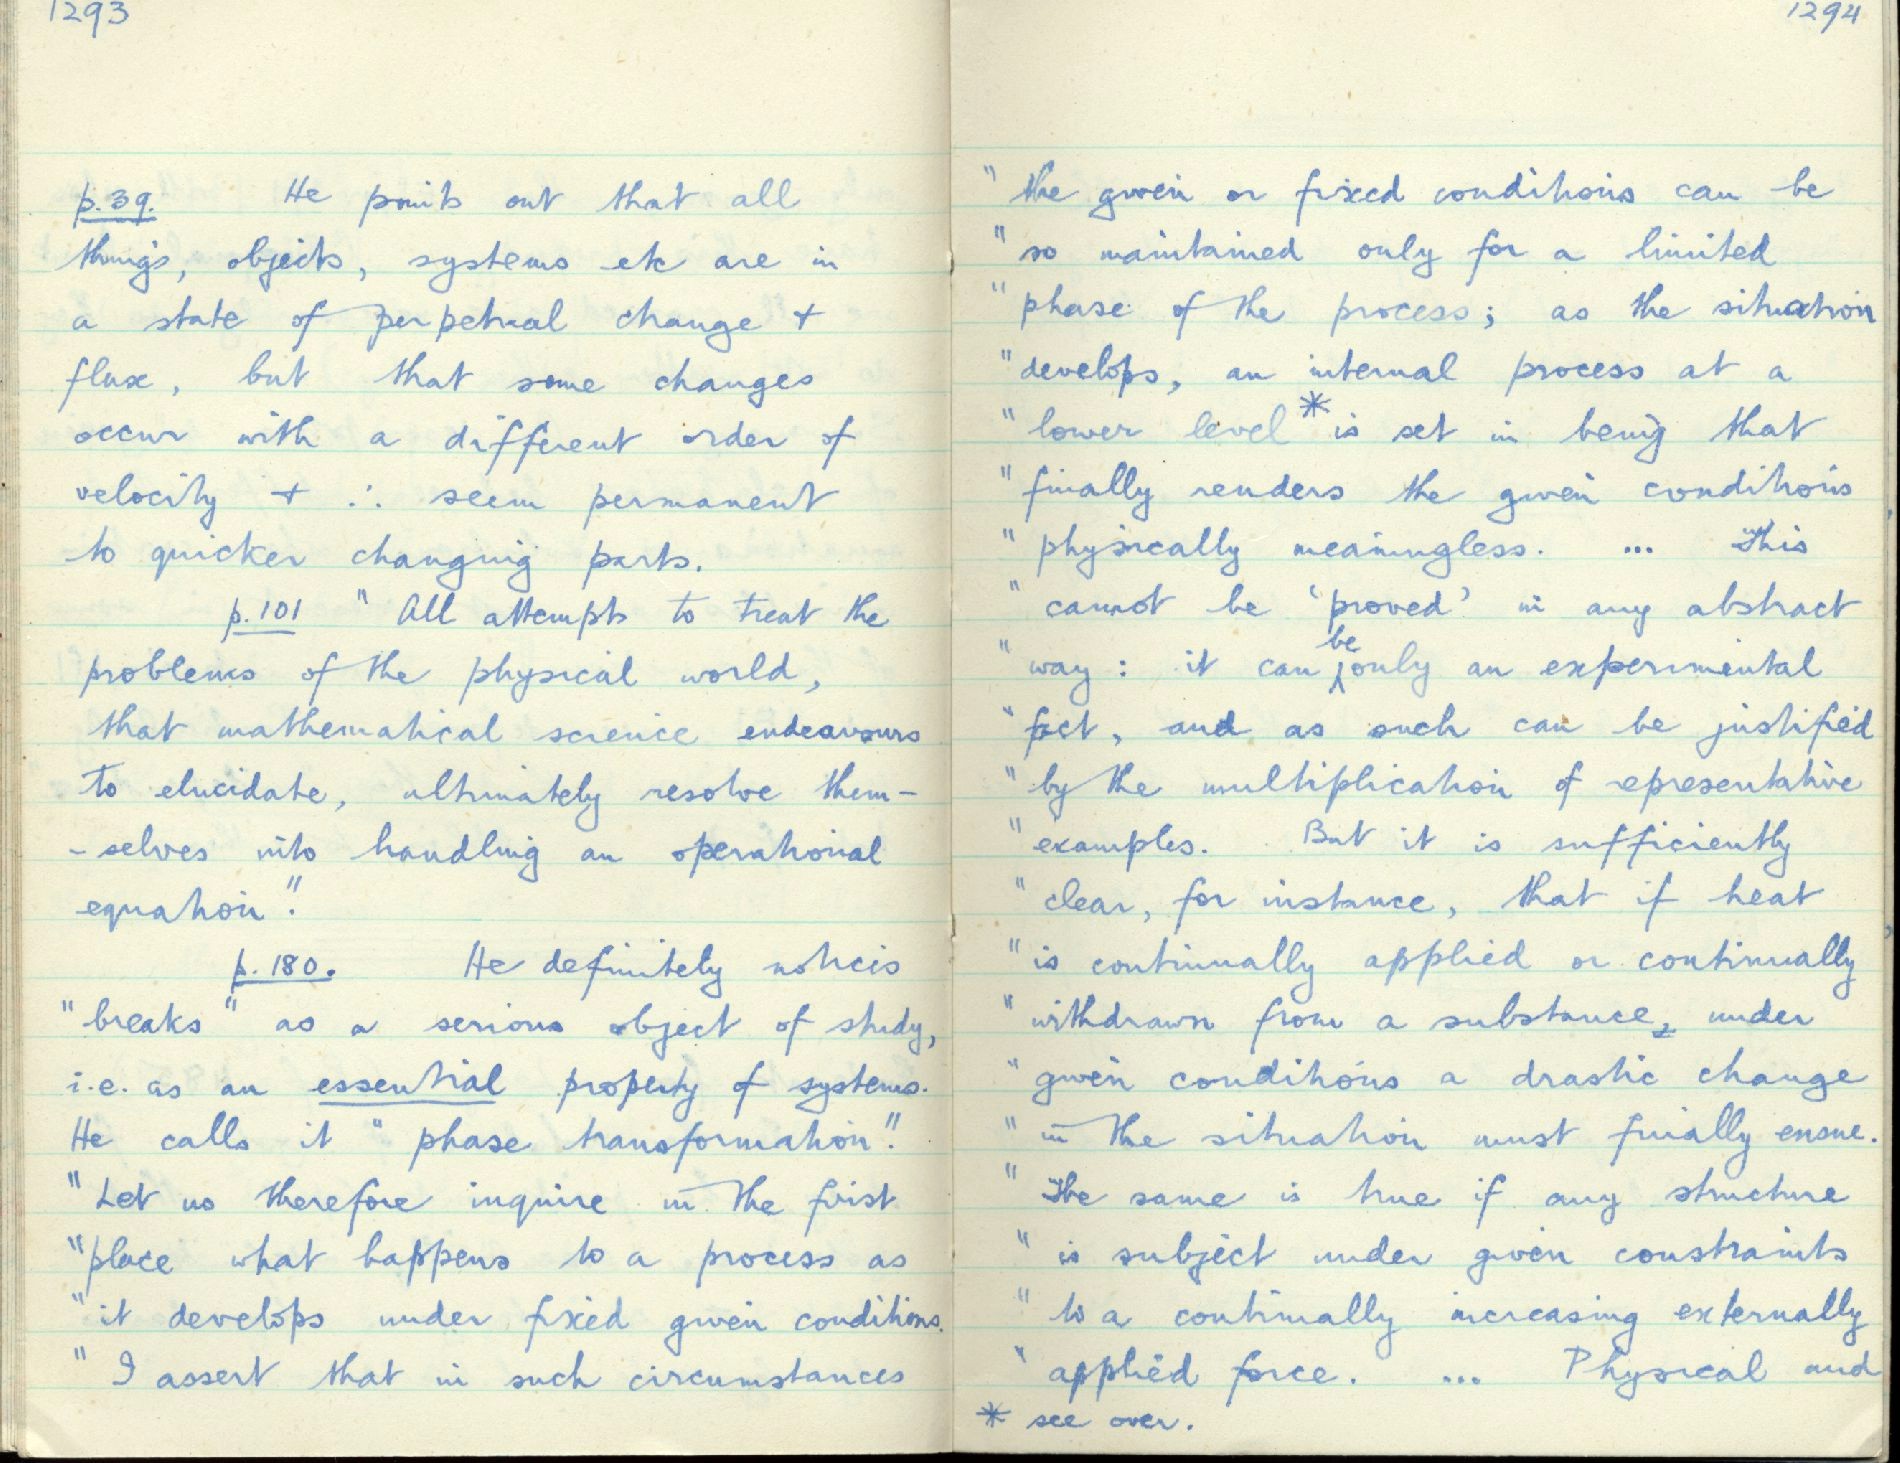 1293
p. 39. He points out that all
things, objects, systems etc are in
a state of perpetual change +
flux, but that some changes
occur with a different order of
velocity + ∴ seem permanent
to quicker changing parts.
p. 101 " All attempts to treat the
problems of the physical world,
that mathematical science endeavours
to elucidate, ultimately resolve them-
-selves into handling an operational
equation".
p. 180. He definitely notices
"breaks" as a serious object of study,
i.e. as an essential property of systems.
He calls it "phase transformation".
"Let us therefore inquire in the first
"place what happens to a process as
"it develops under fixed given conditions.
" I assert that in such circumstances
1294
" the given or fixed conditions can be
" so maintained only for a limited
" phase of the process; as the situation
" develops, an internal process at a
" lower level * is set in being that
" finally renders the given conditions
" physically meaningless. ... This
" cannot be 'proved' in any abstract
" way : it can be only an experimental
" fact, and as such can be justified
" by the multiplication of representative
" examples. But it is sufficiently
" clear, for instance, that if heat
" is continually applied or continually
" withdrawn from a substance, under
" given conditions a drastic change
" in the situation must finally ensue.
" The same is true if any structure
" is subject under given constraints
" to a continually increasing externally
" applied force. ... Physical and
* see over.